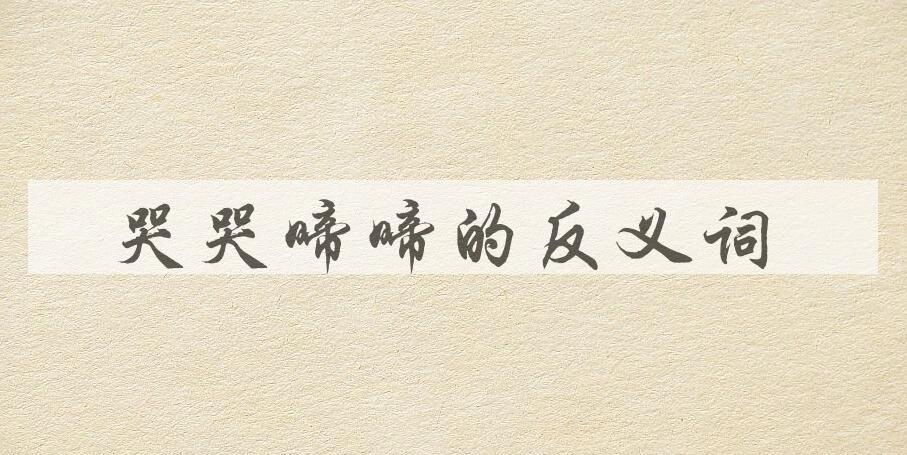 哭哭啼啼的反义词